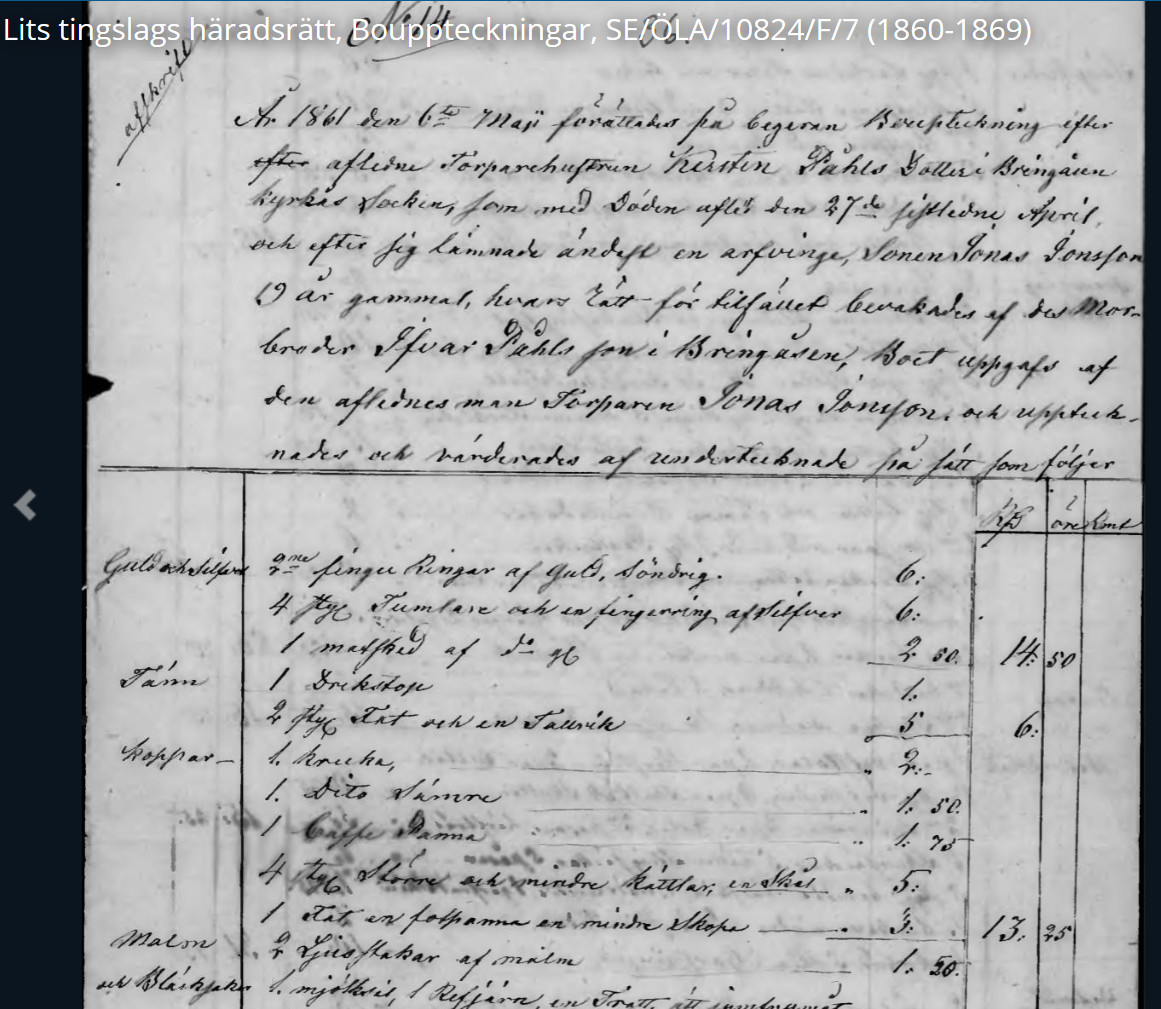 Lits tingslags häradsrätt, Bouppteckningar, SE/ÖLA/10824/F/7 (1860-1869)
No 14
afskrift
År 1861 den 6te Maji förättades på begeran Bouptekning efter
efter aflidne Torparehustrun Kerstin Påhls Dotter i Bringåsen
kyrkås Socken, som med Döden aflet den 27de sistledne April,
och efter sig lämnade ändast en arfvinge, Sonen Jonas Jonsson
19 år gammal, hvars rätt för tilfället bevakades af des Mor-
broder Ifvar Påhls son i Bringåsen, Boet uppgafs af
den aflidnes man Torparen Jonas Jonsson, och uppteck-
nades och värderades af undertecknade på sätt som följer
öre Rmt
Guld och Silfver 2ne finger Ringar af Guld, söndrig. 6:
4 styc Tumlare och en fingerring af Silfver 6:
1 matsked af do 2 50. 14: 50
Tänn 1 Drikstop 1:
2 styc Fat och en Tallrik 5 6:
Koppar 1. kruka, 2:
1. Dito Sämre 1: 50.
1 Caffe Panna 1: 75
4 styc Större och mindre kättlar, en Skål 5:
1 Fat en fotpanna en mindre Skopa 3: 13: 25
Malm 2 Ljusstakar af malm 1:
och Bläcksaker 1. mjölksil, 1 Refjärn, en Tratt, ått